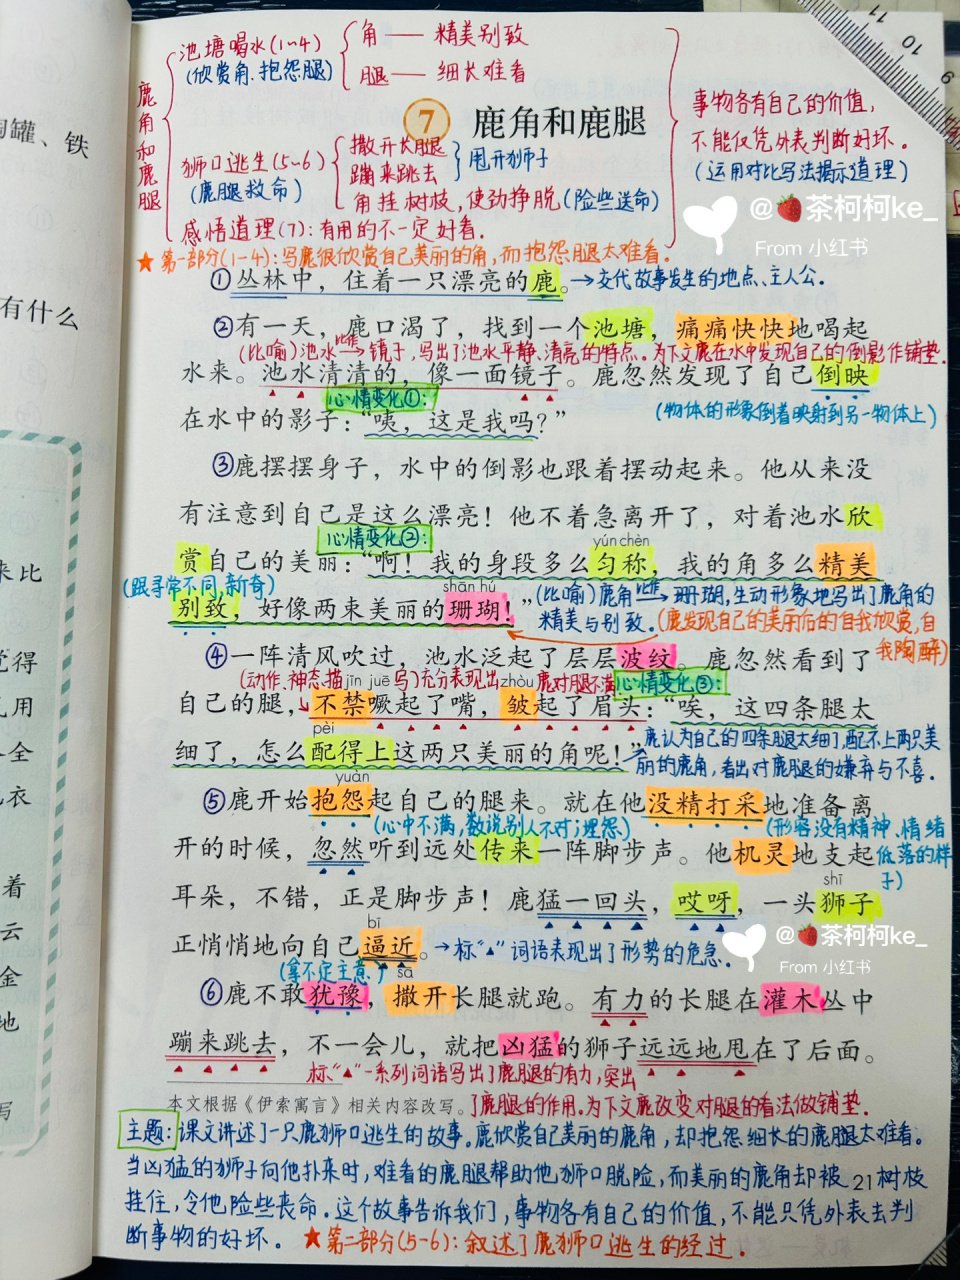 池塘喝水(1~4)
(欣赏角、抱怨腿)
角——精美别致
腿——细长难看
鹿角和鹿腿
7 鹿角和鹿腿
狮口逃生(5~6)
(鹿腿救命)
撒开长腿
蹦来跳去
甩开狮子
角挂树枝,使劲挣脱(险些送命)
感悟道理(7):有用的不一定好看.
事物各有自己的价值,
不能仅凭外表判断好坏.
(运用对比写法揭示道理)
@🍓茶柯柯ke_
From 小红书
11
10
9
★第一部分(1-4):写鹿很欣赏自己美丽的角,而抱怨腿太难看.
①丛林中,住着一只漂亮的鹿。→交代故事发生的地点、主人公.
②有一天,鹿口渴了,找到一个池塘,痛痛快快地喝起
(比喻)池水 比作→ 镜子,写出了池水平静、清亮的特点.为下文鹿在水中发现自己的倒影作铺垫.
水来。池水清清的,像一面镜子。鹿忽然发现了自己倒映
心情变化①:
(物体的形象倒着映射到另一物体上)
在水中的影子:“咦,这是我吗?”
③鹿摆摆身子,水中的倒影也跟着摆动起来。他从来没
有注意到自己是这么漂亮!他不着急离开了,对着池水欣
心情变化②:
yún chèn
赏自己的美丽:“啊!我的身段多么匀称,我的角多么精美
(跟寻常不同,新奇)
shān hú
别致,好像两束美丽的珊瑚!”
(比喻)鹿角 比作→ 珊瑚,生动形象地写出了鹿角的
精美与别致.(鹿发现自己的美丽后的自我欣赏,自
我陶醉)
④一阵清风吹过,池水泛起了层层波纹。鹿忽然看到了
(动作、神态描写)充分表现出鹿对腿不满
jīn juē
zhòu
心情变化③:
自己的腿,不禁噘起了嘴,皱起了眉头:“唉,这四条腿太
pèi
细了,怎么配得上这两只美丽的角呢!”
鹿认为自己的四条腿太细了,配不上两只美
丽的鹿角,看出对鹿腿的嫌弃与不喜.
yuàn
⑤鹿开始抱怨起自己的腿来。就在他没精打采地准备离
(心中不满,数说别人不对;埋怨.)
(形容没有精神、情绪
低落的样
子)
开的时候,忽然听到远处传来一阵脚步声。他机灵地支起
shī
耳朵,不错,正是脚步声!鹿猛一回头,哎呀,一头狮子
bī
正悄悄地向自己逼近。→标“▲”词语表现出了形势的危急.
@🍓茶柯柯ke_
From 小红书
(拿不定主意.)
sā
⑥鹿不敢犹豫,撒开长腿就跑。有力的长腿在灌木丛中
蹦来跳去,不一会儿,就把凶猛的狮子远远地甩在了后面。
标“▲”一系列词语写出了鹿腿的有力,突出
本文根据《伊索寓言》相关内容改写。
了鹿腿的作用.为下文鹿改变对腿的看法做铺垫.
主题:课文讲述了一只鹿狮口逃生的故事.鹿欣赏自己美丽的鹿角,却抱怨细长的鹿腿太难看.
当凶猛的狮子向他扑来时,难看的鹿腿帮助他狮口脱险,而美丽的鹿角却被树枝
21
挂住,令他险些丧命.这个故事告诉我们,事物各有自己的价值,不能只凭外表去判
断事物的好坏.
★第二部分(5-6):叙述了鹿狮口逃生的经过.
陶罐、铁
有什么
来比
觉得
用
全
衣
着
云
金
地
写